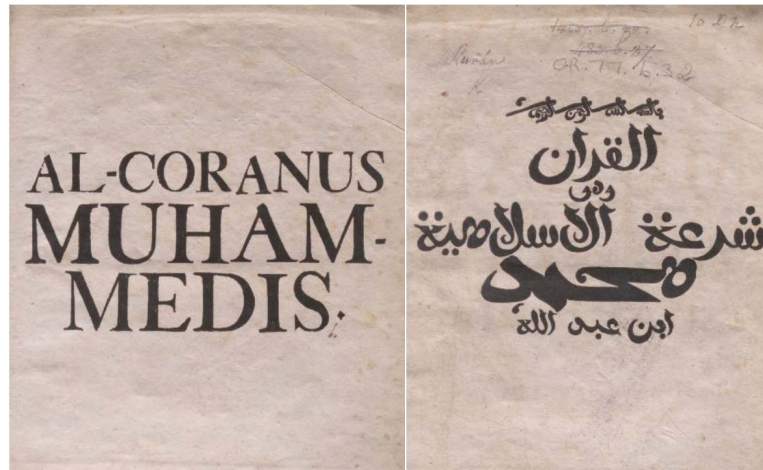 AL-CORANUS
MUHAM-
MEDIS;
10
OR. 77. b. 32
القران
وهى
شرعة الاسلامية
محمد
ابن عبد الله